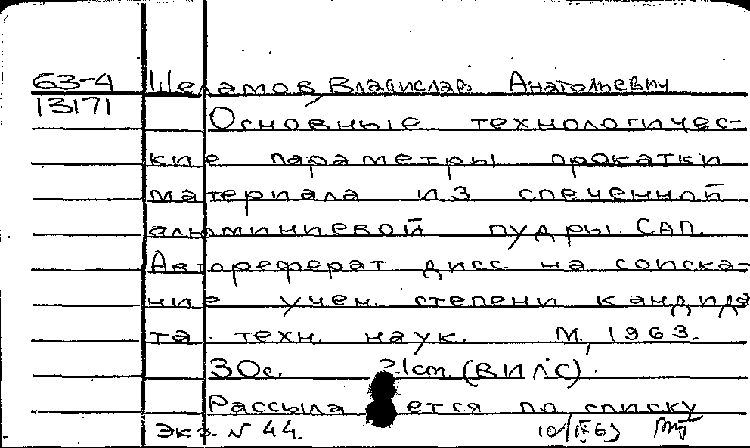 63-4 Шеламов, Владислав Анатольевич
13171
Основные технологичес-
кие параметры прокатки
материала из спеченной
алюминиевой пудры САП.
Автореферат дисс. на соиска-
ние учен. степени кандида
та техн. наук. М, 1963.
30с. 21см. (ВИЛС).
Рассылается по списку
Экз. N 44. 10/IX 63